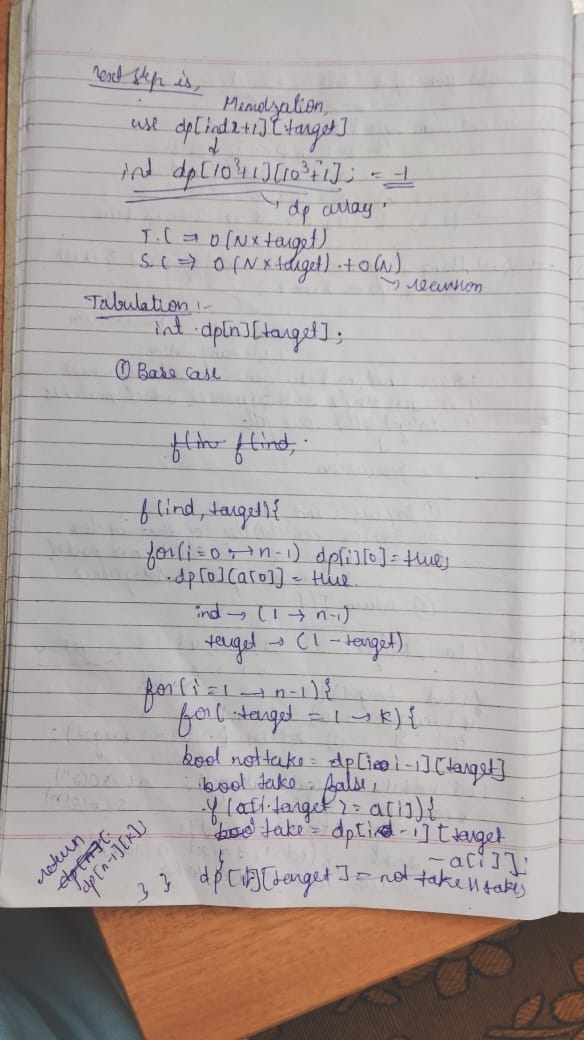 next step is,
Memoization,
use dp[ind+1][target]
↓
int dp[10³+1][10³+1]; = -1
↘ dp array.
T.C ⇒ O(N x target)
S.C ⇒ O(N x target) + O(N)
↘ recursion
Tabulation :-
int dp[n][target];
① Base case
f(in f(ind,
f(ind, target){
for(i=0 → n-1) dp[i][0]=true;
dp[0][a[0]] = true.
ind → (1 → n-1)
target → (1 - target)
for(i=1 → n-1){
for( target = 1 → k){
bool nottake = dp[i-1][target]
bool take = false;
if (a[i. target >= a[i]){
bool take = dp[ind-1][target
- a[i]];
}
dp[i][target] = not take || take;
} }
return
dp[n][
dp[n-1][k]